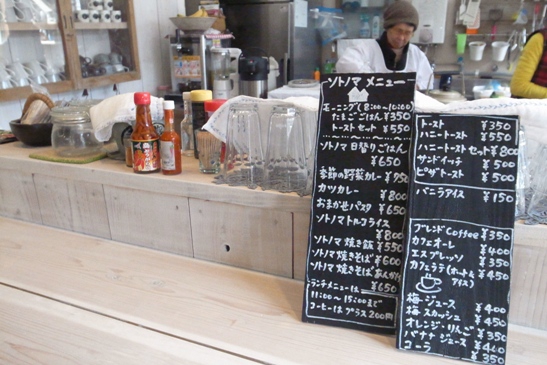 ソトノマ メニュー
モーニング(8:00〜10:00)
たまごごはん ¥350
トーストセット ¥550
ソトノマ 日替りごはん
¥650
季節の野菜カレー ¥950
カツカレー ¥800
おまかせパスタ ¥650
ソトノマトルコライス
¥800
ソトノマ 焼き飯 ¥550
ソトノマ 焼きそば ¥600
ソトノマ 焼きそば
¥650
ランチメニューは
11:00〜15:00まで
コーヒーはプラス200円
トースト ¥350
ハニートースト ¥550
ハニートーストセット ¥800
サンドイッチ ¥500
ピザトースト ¥500
バニラアイス ¥150
ブレンドCoffee ¥350
カフェオーレ ¥400
エスプレッソ ¥350
カフェラテ(ホット&アイス) ¥450
梅ジュース ¥400
梅スカッシュ ¥450
オレンジ・りんご ¥350
バナナジュース ¥400
コーラ ¥350